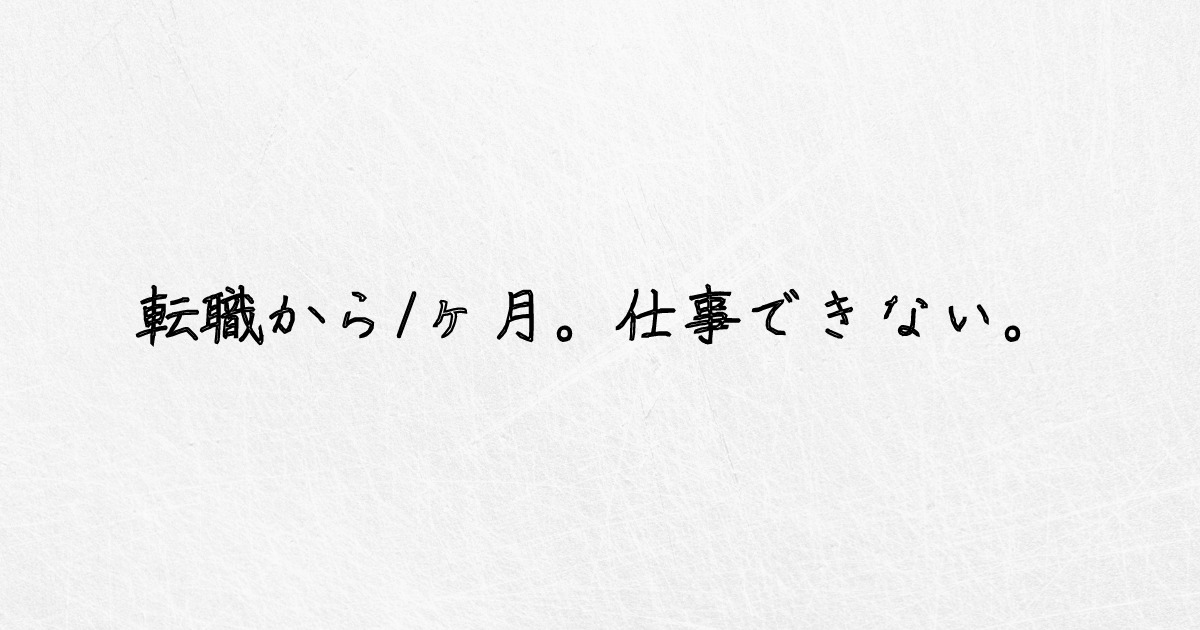 転職から1ヶ月。仕事できない。